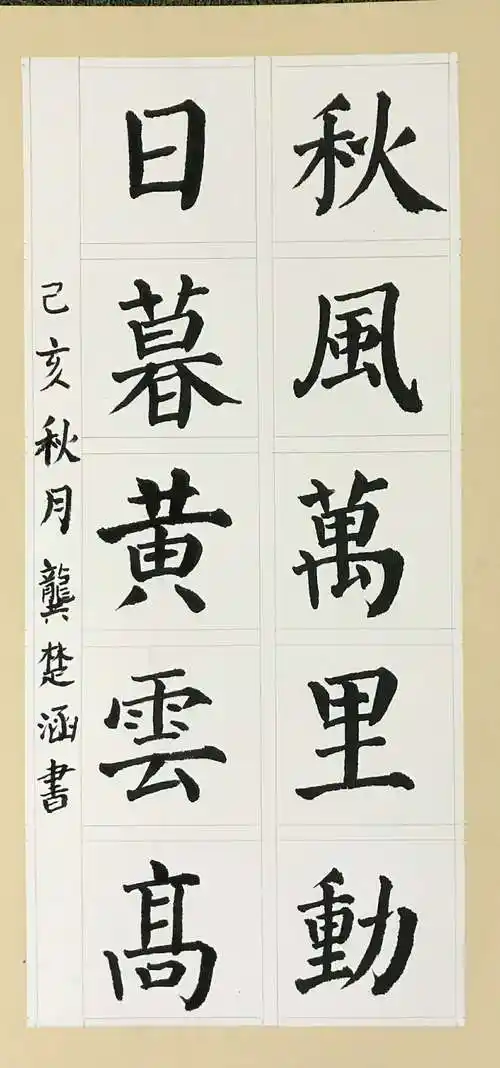 秋風萬里動
日暮黄雲高
己亥秋月龔楚涵書